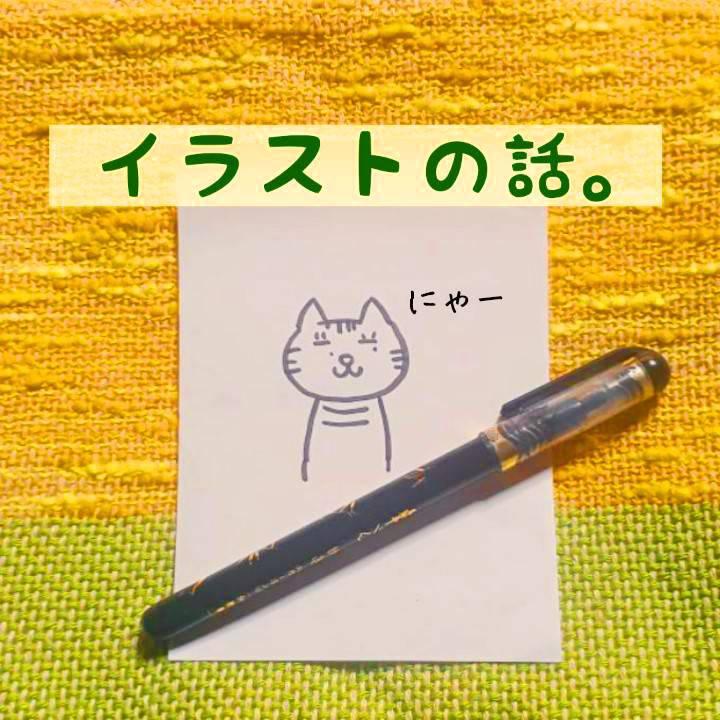 イラストの話。
にゃー